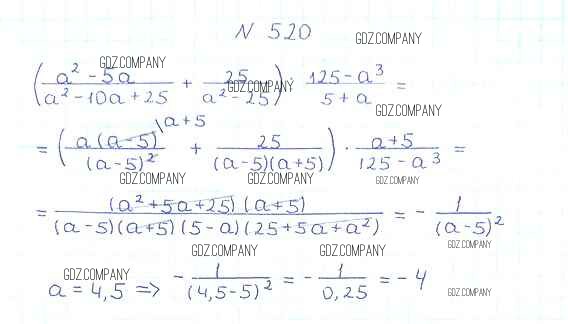 N 520
GDZ.COMPANY
GDZ.COMPANY
(a² - 5a / a² - 10a + 25 + 25 / a² - 25) : 125 - a³ / 5 + a =
GDZ.COMPANY
GDZ.COMPANY
= (a(a-5) \a+5 / (a-5)² + 25 / (a-5)(a+5)) · a+5 / 125 - a³ =
GDZ.COMPANY GDZ.COMPANY GDZ.COMPANY
= (a² + 5a + 25)(a+5) / (a-5)(a+5)(5-a)(25+5a+a²) = - 1 / (a-5)²
GDZ.COMPANY GDZ.COMPANY GDZ.COMPANY
GDZ.COMPANY
a = 4,5 => - 1 / (4,5-5)² = - 1 / 0,25 = - 4
GDZ.COMPANY